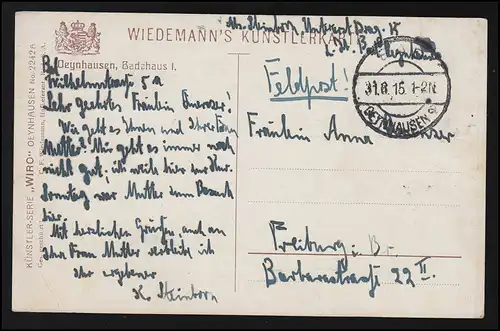 WIEDEMANN'S KÜNSTLERKA
Abs. Steinborn, Unteroff.
Bad
Oeynhausen, Badehaus I.
Feldpost!
31.8.15. 1-2N
OEYNHAUSEN
Wilhelmstrasse 5a
Sehr geehrtes Fräulein
Wie geht es Ihnen und Ihrer Frau
Mutter? Mir geht es immer noch
nicht gut; bin noch hier zur Kur.
Sonntag war Mutter zum Besuch
hier.
Mit herzlichen Grüssen, auch an
Ihre Frau Mutter verbleib ich
Ihr ergebener
K. Steinborn
Fräulein Anna
Freiburg i. Br.
Barbarastrasse 22 II.
KÜNSTLER-SERIE „WIRO“ OEYNHAUSEN No. 2242A